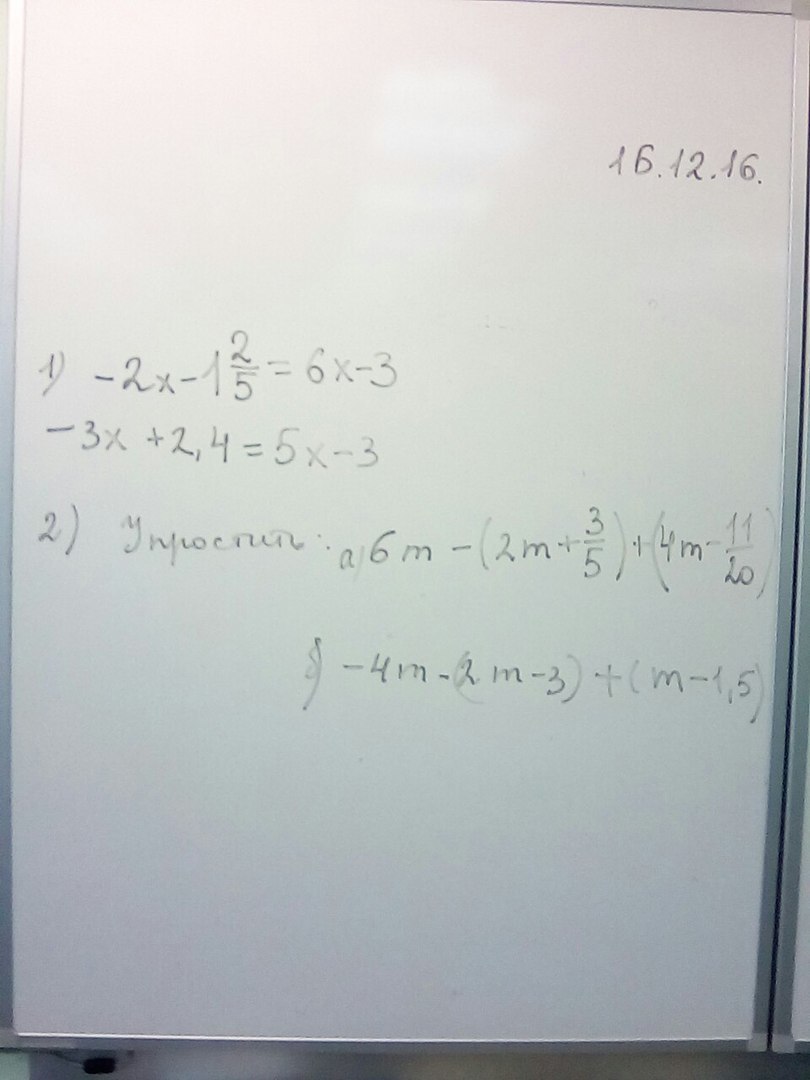 16.12.16.
1) -2x-1 2/5 = 6x-3
-3x +2,4 = 5x-3
2) Упростить: а) 6m -(2m+3/5)+(4m-11/20)
б) -4m-(2m-3)+(m-1,5)